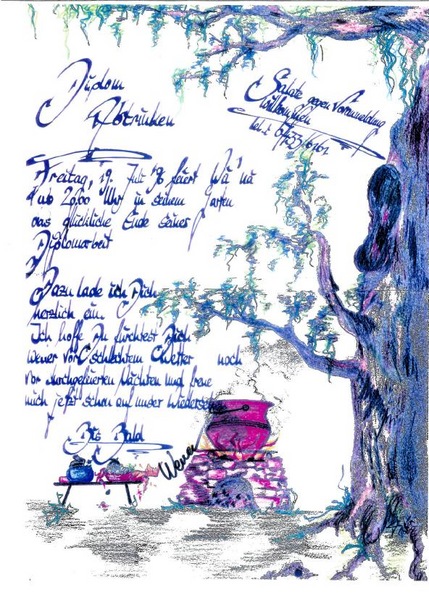 Diplom
Abtrinken
Salate gegen Voranmeldung
willkommen
Freitag, 19. Juli '96 feiert
ab 20.00 Uhr in seinem Garten
das glückliche Ende seiner
Diplomarbeit
Dazu lade ich Dich
herzlich ein
Ich hoffe Du fürchtest Dich
weder vor schlechtem Wetter noch
vor durchgefeierten Nächten und freue
mich jetzt schon auf unser Wiedersehen
Bis Bald